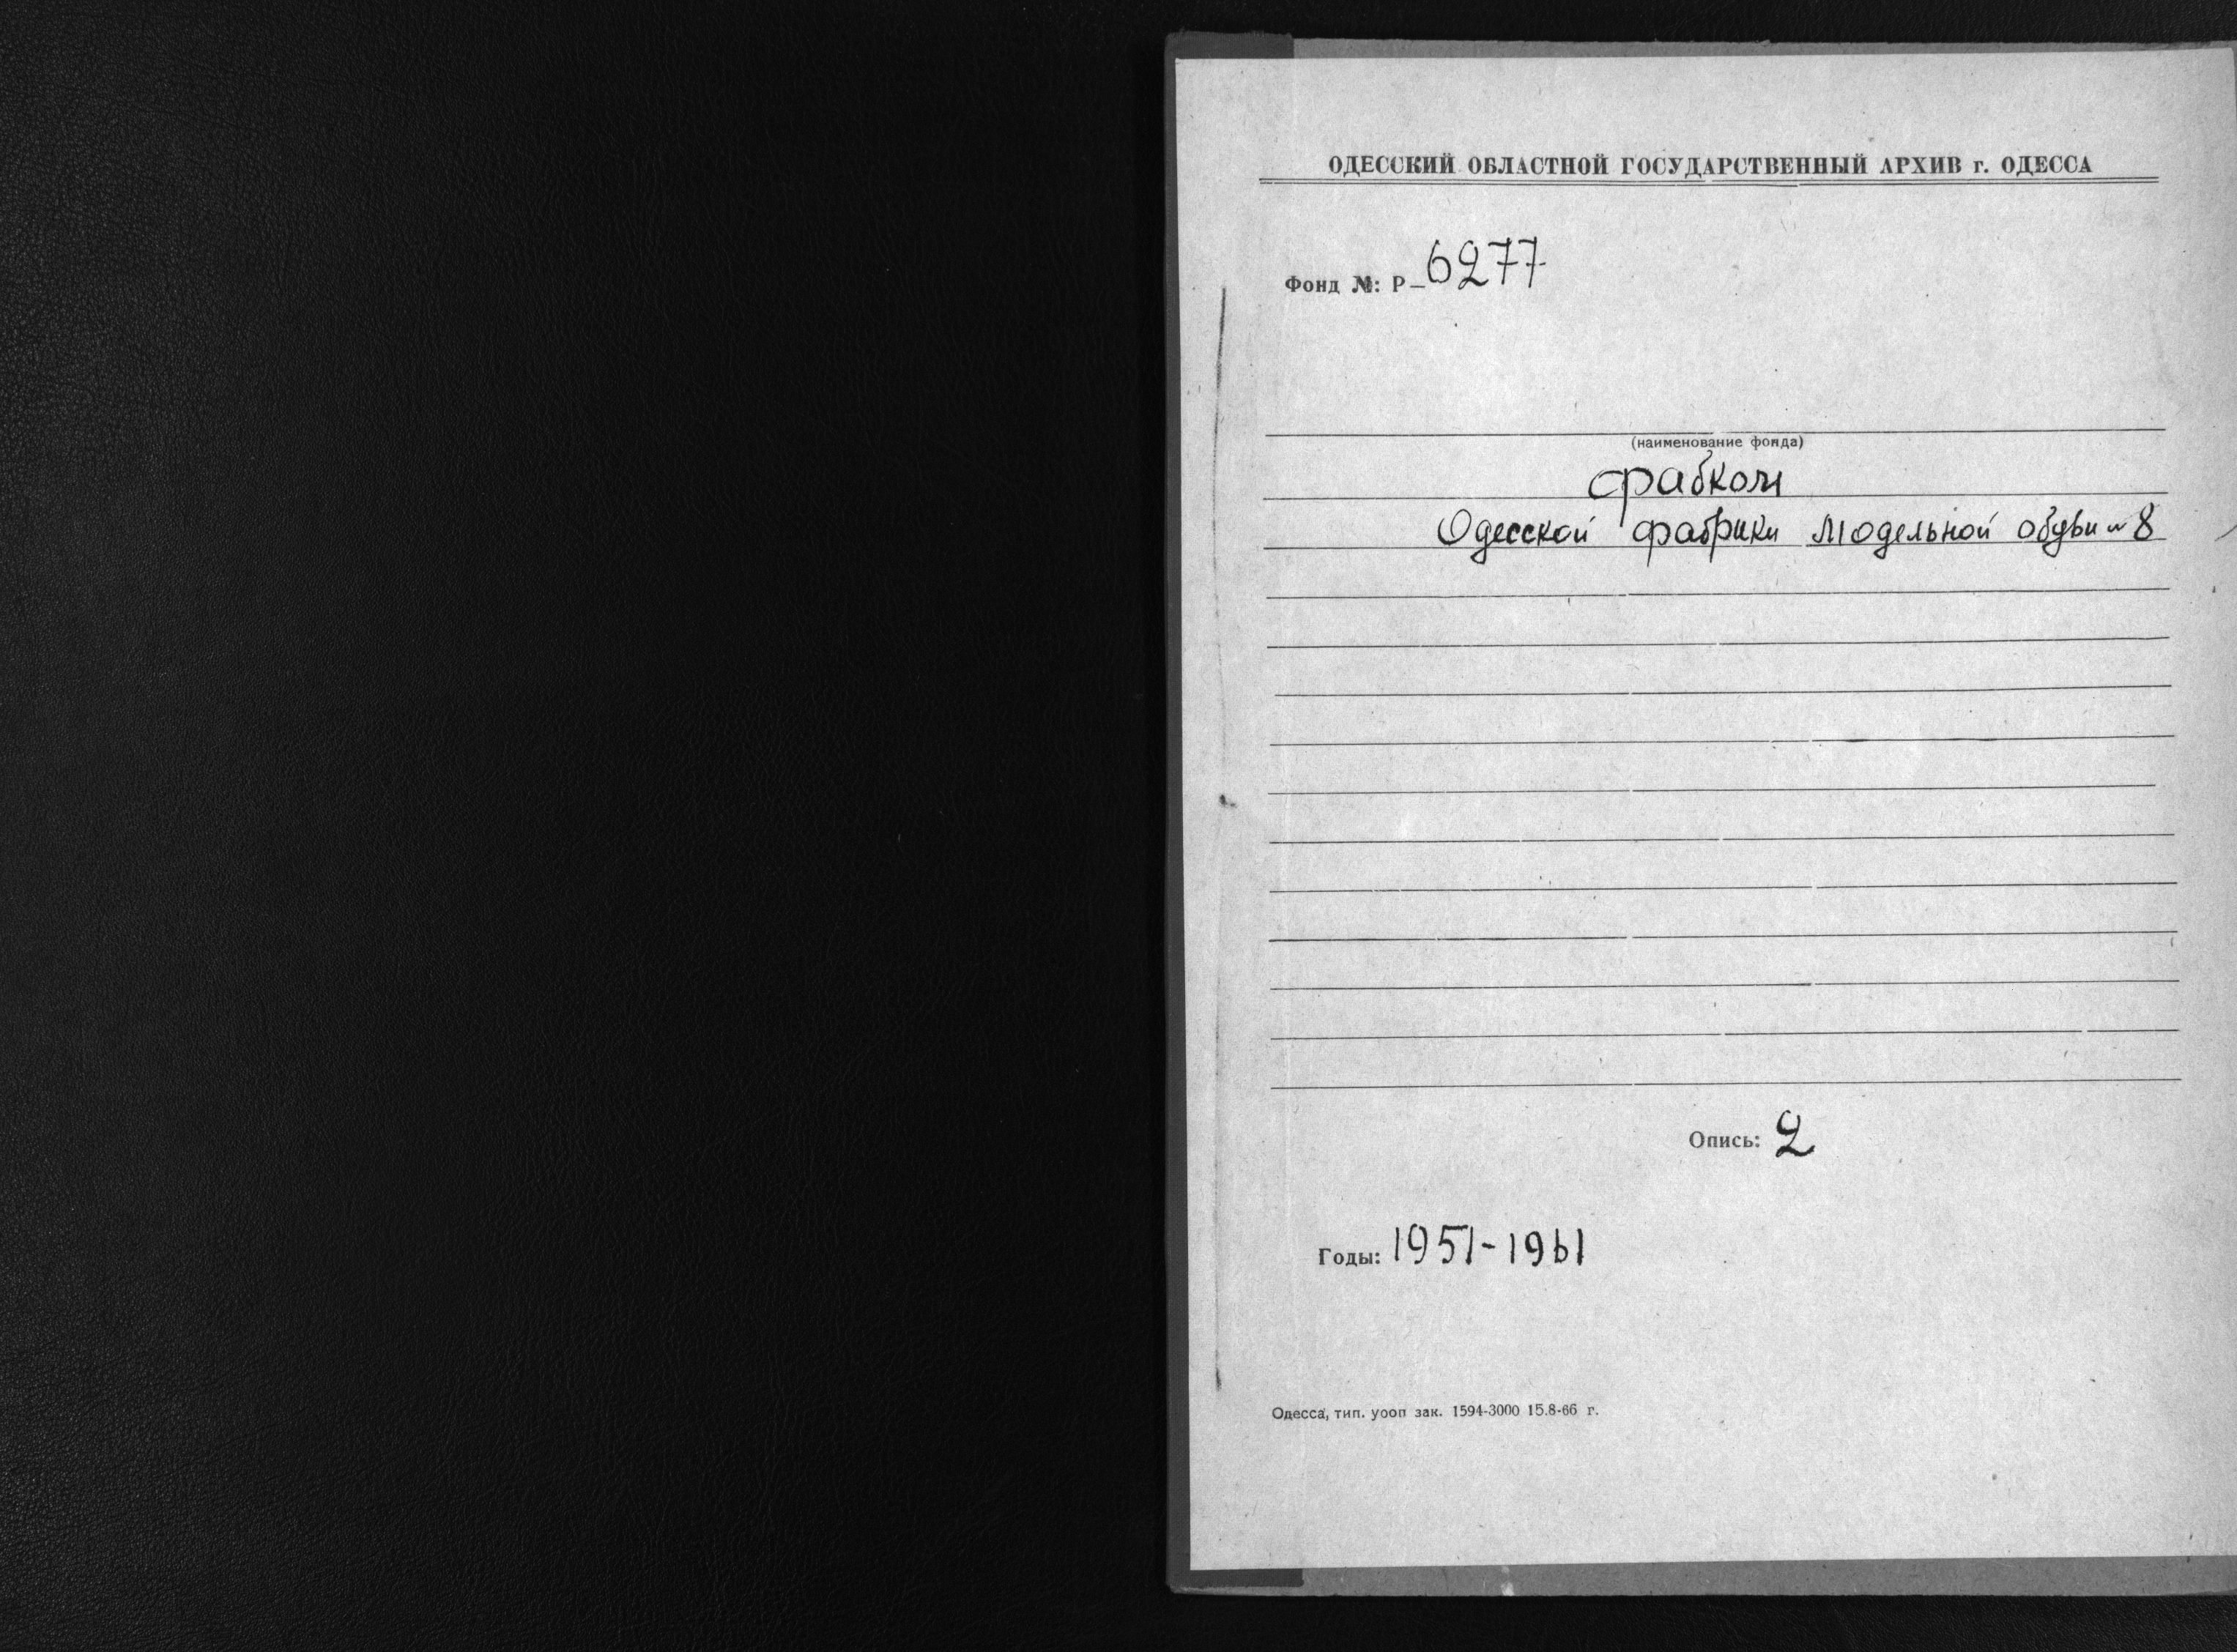 ОДЕССКИЙ ОБЛАСТНОЙ ГОСУДАРСТВЕННЫЙ АРХИВ г. ОДЕССА
Фонд №: Р–6277
(наименование фонда)
Фабком
Одесской фабрики модельной обуви № 8
Опись: 2
Годы: 1951-1961
Одесса, тип. уооп зак. 1594-3000 15.8-66 г.